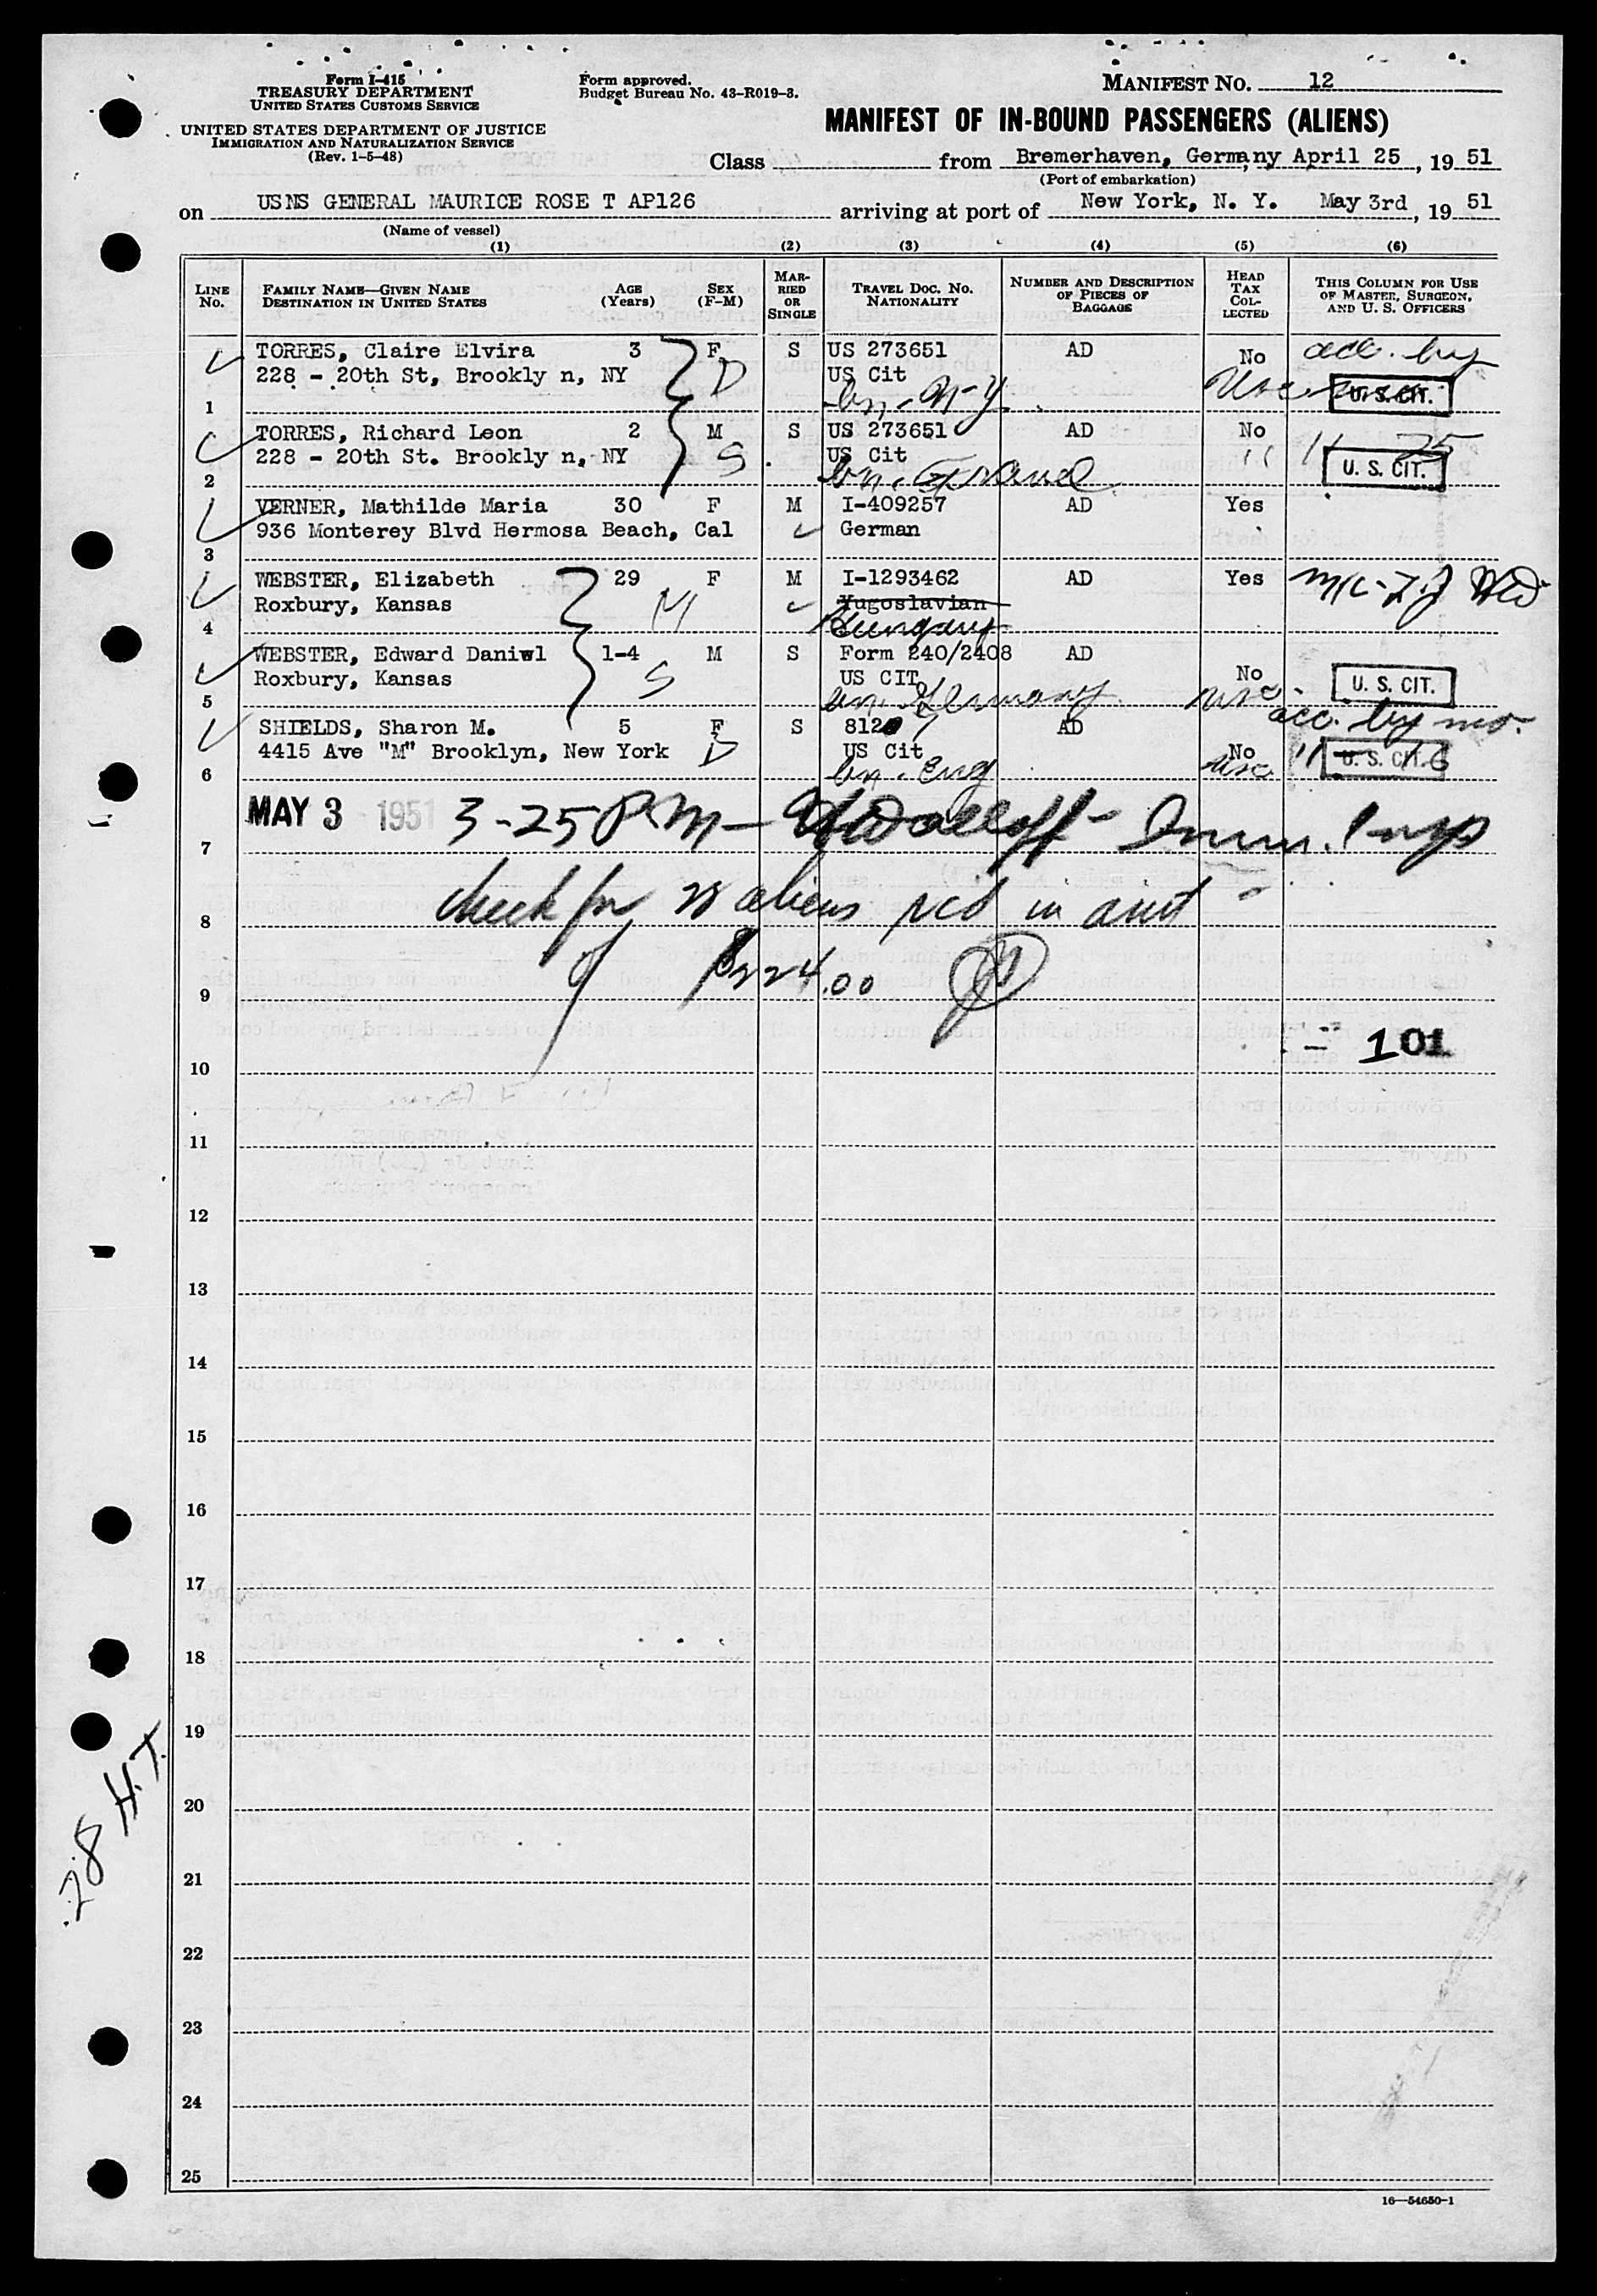 Form I-415
TREASURY DEPARTMENT
UNITED STATES CUSTOMS SERVICE
UNITED STATES DEPARTMENT OF JUSTICE
IMMIGRATION AND NATURALIZATION SERVICE
(Rev. 1-5-48)
Form approved.
Budget Bureau No. 43-R019-3.
MANIFEST NO. 12
MANIFEST OF IN-BOUND PASSENGERS (ALIENS)
Class from Bremerhaven, Germany April 25, 19 51
(Port of embarkation)
on USNS GENERAL MAURICE ROSE T AP126 arriving at port of New York, N. Y. May 3rd, 19 51
(Name of vessel)
(1) (2) (3) (4) (5) (6)
LINE No. FAMILY NAME—GIVEN NAME DESTINATION IN UNITED STATES AGE (Years) SEX (F-M) MARRIED OR SINGLE TRAVEL DOC. NO. NATIONALITY NUMBER AND DESCRIPTION OF PIECES OF BAGGAGE HEAD TAX COLLECTED THIS COLUMN FOR USE OF MASTER, SURGEON, AND U. S. OFFICERS
TORRES, Claire Elvira 3 F S US 273651 AD No acc. by
228 - 20th St, Brookly n, NY D US Cit
1 bn. N-Y. U. S. CIT.
TORRES, Richard Leon 2 M S US 273651 AD No
228 - 20th St. Brookly n, NY S US Cit " " 25
2 bn. U. S. CIT.
VERNER, Mathilde Maria 30 F M I-409257 AD Yes
936 Monterey Blvd Hermosa Beach, Cal German
3
WEBSTER, Elizabeth 29 F M I-1293462 AD Yes
Roxbury, Kansas M Yugoslavian
4 Hungary
WEBSTER, Edward Daniwl 1-4 M S Form 240/2408 AD
Roxbury, Kansas S US CIT No U. S. CIT.
5 bn. Germany usc. acc. by mo.
SHIELDS, Sharon M. 5 F S 8120 7 AD
4415 Ave "M" Brooklyn, New York D US Cit No U. S. CIT.
6 bn. Eng usc
MAY 3 1951 3-25 P.M- Imm. Insp
7
check for 28 aliens rcd in amt
8
of $224.00
9
101
10
11
12
13
14
15
16
17
18
19
28 H.T.
20
21
22
23
24
25
16—54650-1